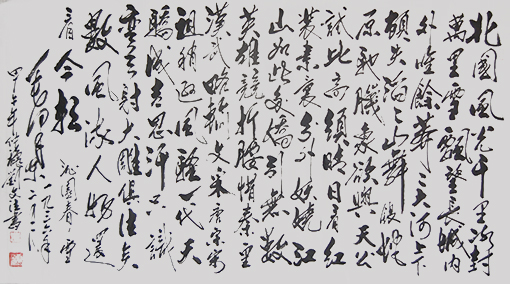 北國風光千里冰封
萬里雪飄望長城内
外唯餘莽莽大河上下
頓失滔滔山舞銀蛇
原馳臘象欲與天公
試比高須晴日看紅
裝素裹分外妖嬈江
山如此多嬌引無數
英雄競折腰惜秦皇
漢武略輸文采唐宗宋
祖稍遜風騷一代天
驕成吉思汗只識
彎弓射大雕俱往矣
數風流人物還
看今朝
沁園春雪
一九三六年
二月
甲午年